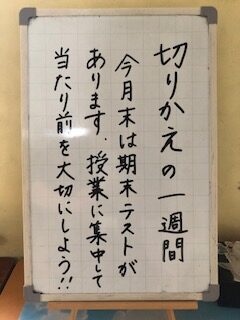 切りかえの一週間
今月末は期末テストが
あります。授業に集中して
当たり前を大切にしよう!!